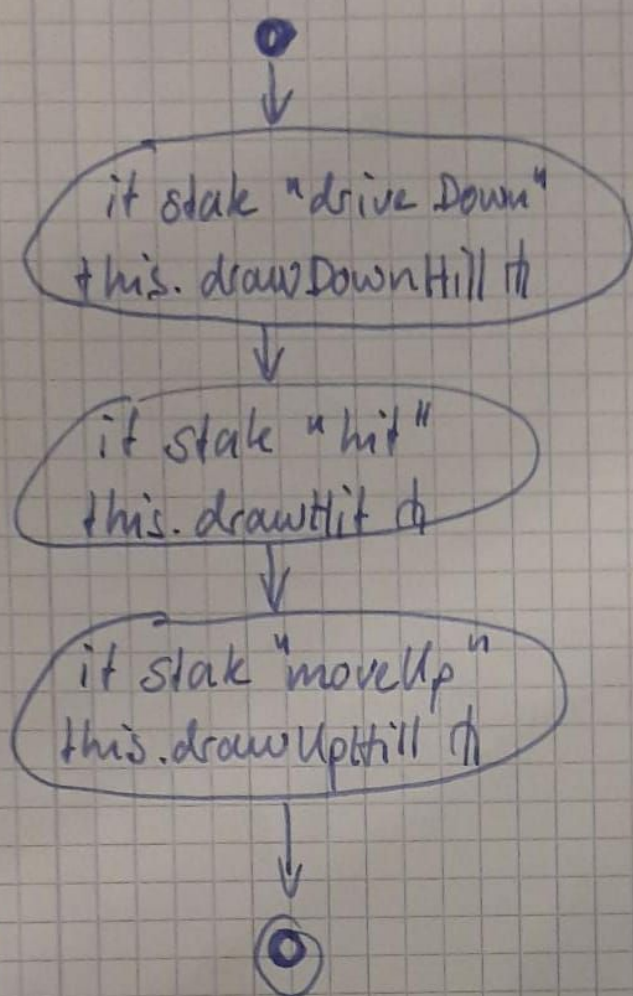 if state "drive Down"
this. drawDownHill
if state "hit"
this. drawHit
if state "moveUp"
this. drawUpHill